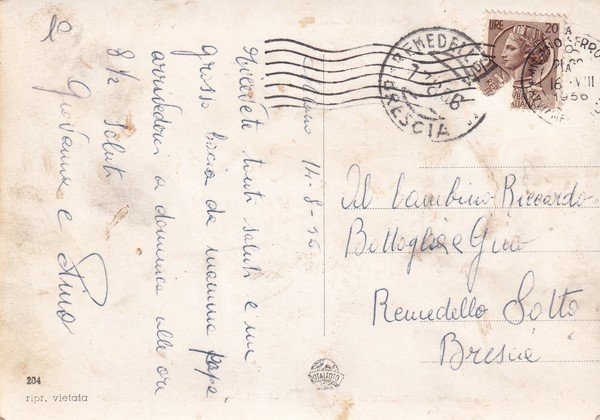 14-8-56
Ricevete tanti saluti e un
grosso bacio da mamma papà
arrivederci a domenica alle ore
8 1/2 Saluti
Giovanna e Pino
Al bambino Riccardo
Bottoglia e Gino
Remedello Sotto
Brescia
LIRE 20
REMEDELLO
BRESCIA
16 VIII
1956
204
ripr. vietata